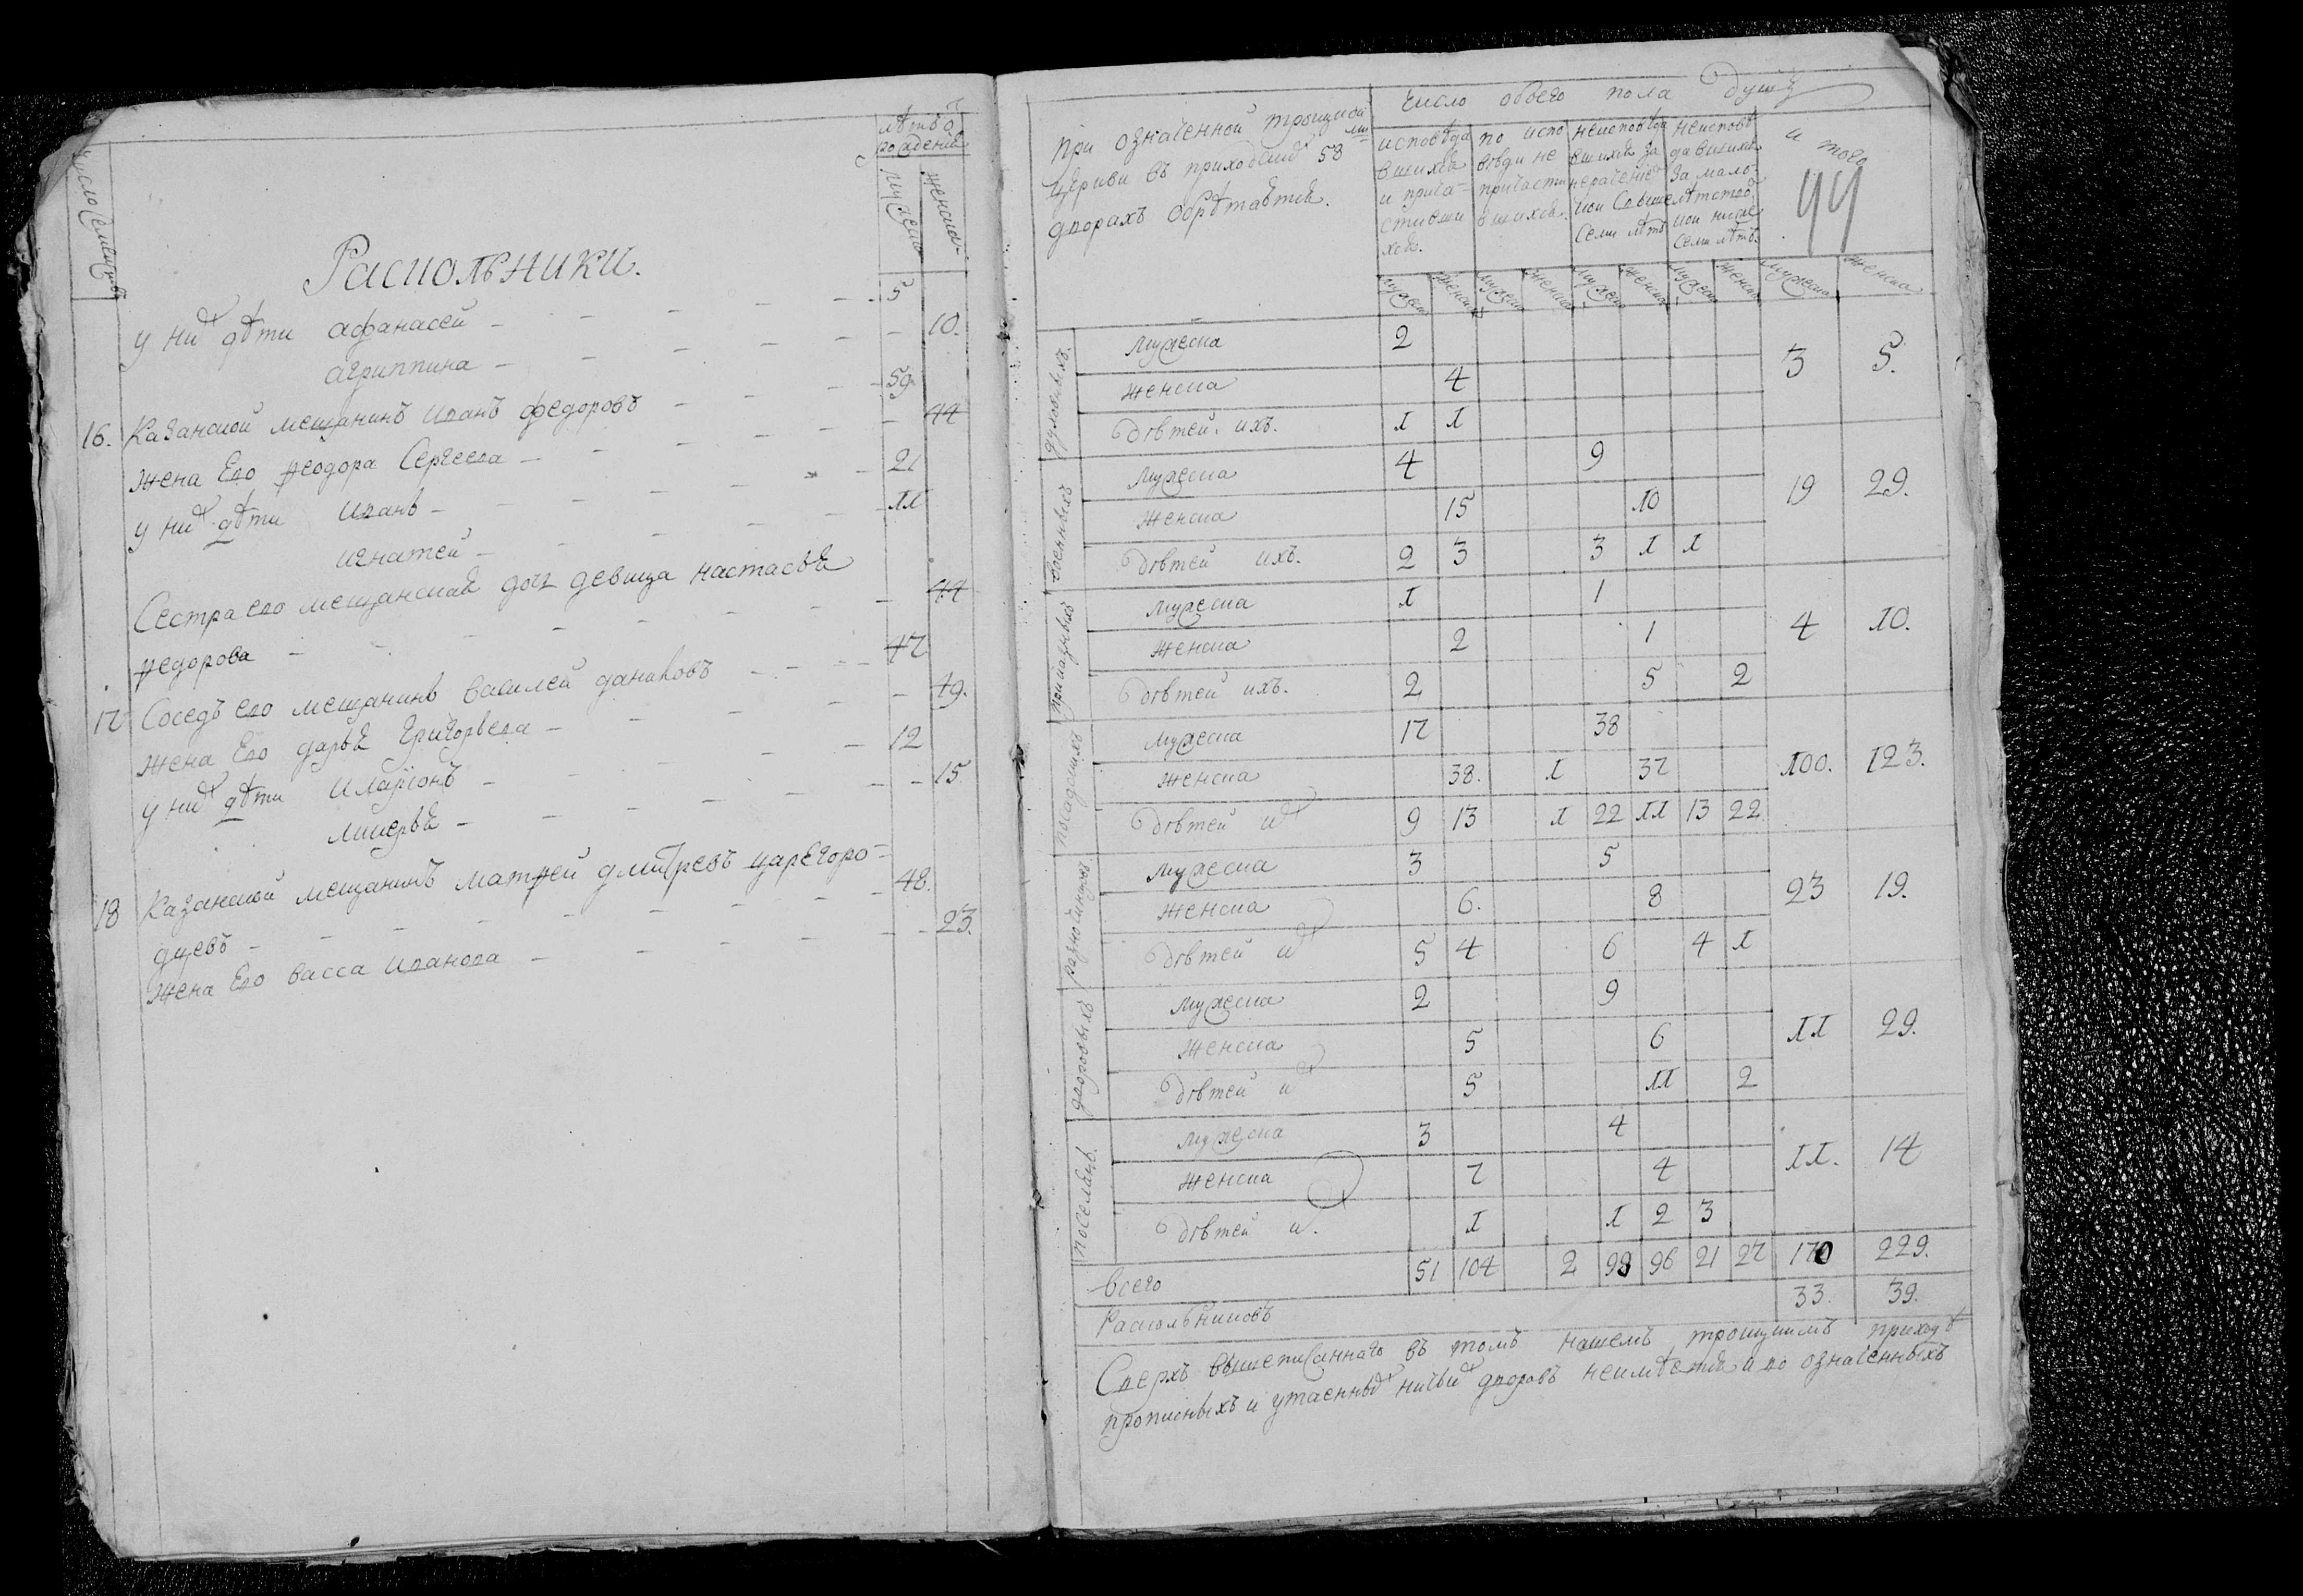 число семей
лѣтъ о
рожденіѧ
мужеска
женска
Раскольники.
у нихъ дѣти афанасей - - - - - 5
агриппина - - - - - - 10.
16. Казанской мещанинъ иванъ федоровъ - - - 59.
жена Его ѳеодора Сергеева - - - - - - 44
у нихъ дѣти иванъ - - - - - - 21
игнатей - - - - - 11
Сестра его мещанскаѧ дочь девица настасьѧ
ѳедорова - - - - - - - 44
17 Соседъ его мещанинъ василей даниловъ - - - - 47
жена Его дарьѧ григорьева - - - - - 49.
у нихъ дѣти иларіонъ - - - - - 12
ликерьѧ - - - - - - - 15
18 Казанской мещанинъ матѳей дмитревъ цареѓоро-
дцевъ - - - - - - - - 48.
жена Его васса иванова - - - - - - 23.
при означенной троицкой
церкви въ приходскихъ 58 ми
дворахъ обрѣтаетсѧ.
число обоего пола душъ
исповѣда
вшихсѧ
и прича-
стивши
хсѧ.
по испо
вѣди не
причасти
вшихсѧ.
неисповѣда
вшихсѧ за
нерачениемъ
кои Свыше
Семи лѣтъ
неисповѣ
давшихсѧ
за мало-
лѣтствомъ
кои ниже
Семи лѣтъ.
и того
44
мужеск женска мужеск женска мужеск женска мужеск женска мужеска женска
духовныхъ.
мужеска 2
женска 4 3 5.
дѣтей ихъ. 1 1
военныхъ
мужеска 4 9
женска 15 10 19 29.
дѣтей ихъ. 2 3 3 1 1
приказныхъ
мужеска 1 1
женска 2 1 4 10.
дѣтей ихъ. 2 5 2
посадскихъ
мужеска 17 38
женска 38. 1 37 100. 123.
дѣтей ихъ 9 13 1 22 11 13 22
разночинцовъ
мужеска 3 5
женска 6. 8 23 19.
дѣтей ихъ 5 4 6 4 1
дворовыхъ
мужеска 2 9
женска 5 6 11 29.
дѣтей ихъ 5 11 2
поселѧнъ.
мужеска 3 4
женска 7 4 11. 14
дѣтей ихъ. 1 1 2 3
всего 51 104 2 98 96 21 27 170 229.
Раскольниковъ 33. 39.
Сверхъ вышеписаннаго въ томъ нашемъ троицкомъ приходѣ
прописныхъ и утаенныхъ ничьихъ дворовъ неимѣетсѧ и во означенныхъ